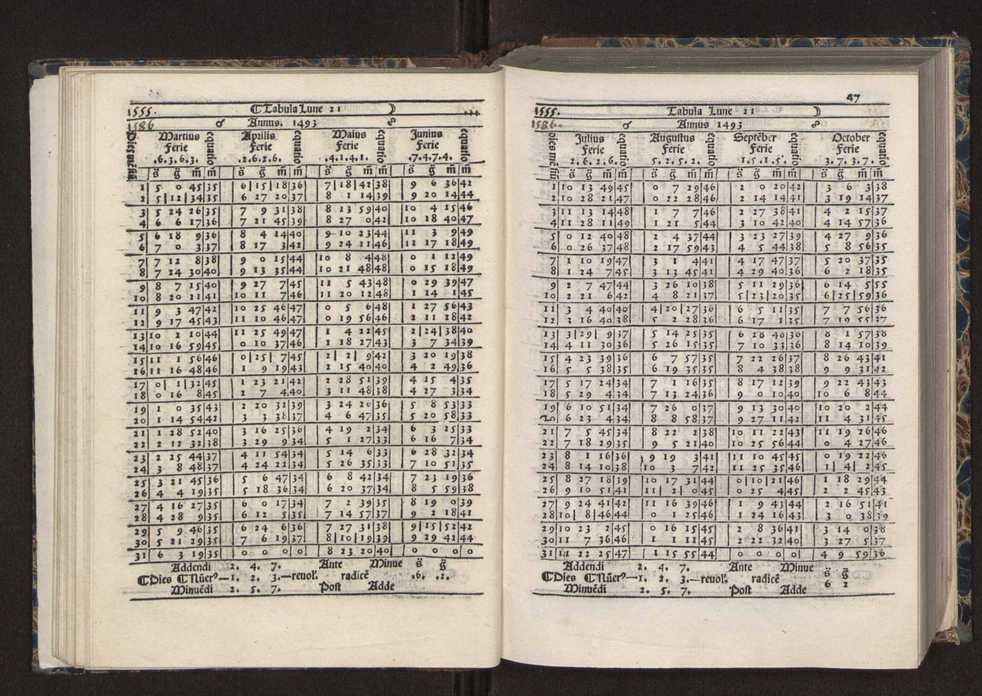 1555. ☾Tabula Lune 21
1586 ♂ Annus. 1493
Dies mēsiū Martius equatio Aprilis equatio Maius equatio Junius equatio
ferie ferie ferie ferie
.6.3.6.3. .2.6.2.6. .4.1.4.1. .7.4.7.4.
s̃ g̃ m̃ m̃ s̃ g̃ m̃ m̃ s̃ g̃ m̃ m̃ s̃ g̃ m̃ m̃
1 5 0 45 35 6 15 18 36 7 18 42 38 9 6 36 42
2 5 12 34 35 6 27 20 37 8 1 14 39 9 20 14 44
3 5 24 26 35 7 9 31 38 8 13 59 40 10 4 15 46
4 6 6 17 36 7 21 45 39 8 27 0 42 10 18 40 47
5 6 18 9 36 8 4 14 40 9 10 23 44 11 3 9 49
6 7 0 3 37 8 17 3 42 9 24 11 46 11 17 18 49
7 7 12 8 38 9 0 15 44 10 8 4 48 0 1 12 49
8 7 24 30 40 9 13 35 44 10 21 48 48 0 15 18 49
9 8 7 15 40 9 27 7 45 11 5 43 48 0 29 39 47
10 8 20 21 41 10 11 7 46 11 20 12 48 1 14 1 45
11 9 3 47 42 10 25 46 47 0 5 6 48 1 27 56 43
12 9 17 45 43 11 10 46 47 0 19 56 46 2 11 18 42
13 10 2 10 44 11 25 49 47 1 4 22 45 2 24 38 40
14 10 16 59 45 0 10 37 46 1 18 27 43 3 7 34 39
15 11 1 56 46 0 25 7 45 2 2 9 42 3 20 19 38
16 11 16 48 46 1 9 19 43 2 15 40 40 4 2 49 36
17 0 1 32 45 1 23 21 42 2 28 51 39 4 15 4 35
18 0 16 8 45 2 7 4 40 3 11 48 38 4 27 3 34
19 1 0 35 43 2 20 31 39 3 24 20 36 5 8 53 33
20 1 14 54 40 3 3 38 37 4 6 47 35 5 20 58 33
21 1 28 52 40 3 16 25 36 4 19 2 34 6 3 25 33
22 2 12 32 38 3 29 9 34 5 1 27 33 6 16 7 34
23 2 25 44 37 4 11 54 34 5 14 6 33 6 28 32 34
24 3 8 48 37 4 24 22 34 5 26 35 33 7 10 51 35
25 3 21 45 36 5 6 47 34 6 8 42 34 7 23 19 36
26 4 4 19 35 5 18 36 34 6 20 37 34 8 5 59 38
27 4 16 27 35 6 0 17 34 7 2 39 35 8 19 0 39
28 4 28 9 35 6 12 5 35 7 14 57 37 9 2 18 41
29 5 9 46 35 6 24 6 36 7 27 31 38 9 15 52 42
30 5 21 29 35 7 6 19 37 8 10 19 39 9 29 42 44
31 6 3 19 35 0 0 0 0 8 23 20 40 0 0 0 0
Addendi 2. 4. 7. Ante Minue s̃ g̃
☾Dies ☾Nũer⁹—1. 2. 3.—reuol'. radicē .6. .2.
Minuēdi 2. 5. 7. Post Adde
47
1555. Tabula Lune 21
1586. ♂ Annus 1493
dies mēsiū Julius equatio Augustus equatio Septēber equatio October equatio
ferie ferie ferie ferie
2.6.2.6. 5.2.5.2. 1.5.1.5. 3.7.3.7.
s̃ g̃ m̃ m̃ s̃ g̃ m̃ m̃ s̃ g̃ m̃ m̃ s̃ g̃ m̃ m̃
1 10 13 49 45 0 7 29 46 2 0 20 42 3 6 3 38
2 10 28 21 47 0 22 28 46 2 14 14 41 3 19 14 37
3 11 13 14 48 1 7 7 46 2 27 38 41 4 2 15 37
4 11 28 11 49 1 21 5 44 3 10 42 40 4 14 57 36
5 0 12 40 48 2 4 37 44 3 23 27 39 4 27 9 36
6 0 26 37 48 2 17 59 43 4 5 44 38 5 8 56 35
7 1 10 19 47 3 1 4 41 4 17 47 37 5 20 37 35
8 1 24 7 45 3 13 45 41 4 29 40 36 6 2 18 35
9 2 7 47 44 3 26 10 38 5 11 29 36 6 14 5 55
10 2 21 6 42 4 8 21 37 5 23 20 35 6 25 59 36
11 3 4 40 40 4 20 27 36 6 5 11 35 7 7 56 36
12 3 16 40 38 5 2 28 36 6 17 1 35 7 19 57 37
13 3 29 9 37 5 14 25 35 6 28 40 36 8 1 57 38
14 4 11 30 36 5 26 15 35 7 10 33 36 8 14 10 39
15 4 23 39 36 6 7 57 35 7 22 26 37 8 26 43 41
16 5 5 38 35 6 19 35 35 8 4 38 38 9 9 31 42
17 5 17 24 34 7 1 16 35 8 17 12 39 9 22 43 43
18 5 29 4 34 7 13 24 36 9 0 10 40 10 6 8 44
19 6 10 51 34 7 26 0 37 9 13 30 40 10 20 2 44
20 6 23 4 34 8 8 58 37 9 27 11 42 11 4 31 45
21 7 5 45 34 8 22 2 38 10 11 22 43 11 19 26 46
22 7 18 29 35 9 5 21 40 10 25 56 44 0 4 17 46
23 8 1 16 36 9 19 3 41 11 10 45 45 0 19 22 46
24 8 14 10 38 10 3 7 42 11 25 35 46 1 4 2 45
25 8 27 18 39 10 17 31 44 0 10 21 46 1 18 29 44
26 9 10 51 41 11 2 0 45 0 25 4 45 2 2 45 43
27 9 24 41 42 11 16 39 46 1 9 43 44 2 16 51 41
28 10 8 46 44 0 1 25 46 1 24 16 43 3 0 38 39
29 10 23 2 45 0 16 15 45 2 8 36 41 3 14 0 38
30 11 7 36 46 1 1 11 45 2 22 32 40 3 27 5 37
31 11 22 25 47 1 15 55 44 0 0 0 0 4 9 59 36
Addendi 2. 4. 7. Ante Minue s̃ g̃
☾Dies ☾Nũer⁹—1. 2. 3.—reuol. radicē
Minuēdi 2. 5. 7. Post Adde 6 2